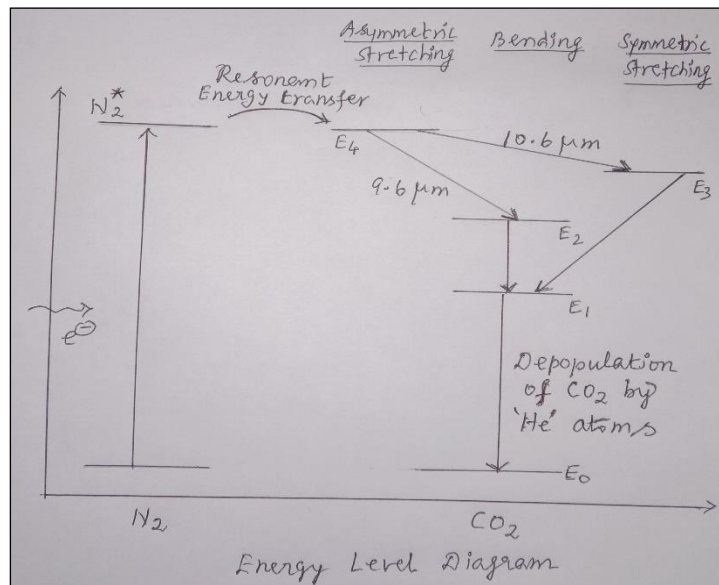 Asymmetric
Stretching
Bending
Symmetric
Stretching
Resonant
Energy transfer
N2*
E4
10.6 μm
E3
9.6 μm
E2
E1
e⊖
Depopulation
of CO2 by
'He' atoms
E0
N2
CO2
Energy Level Diagram